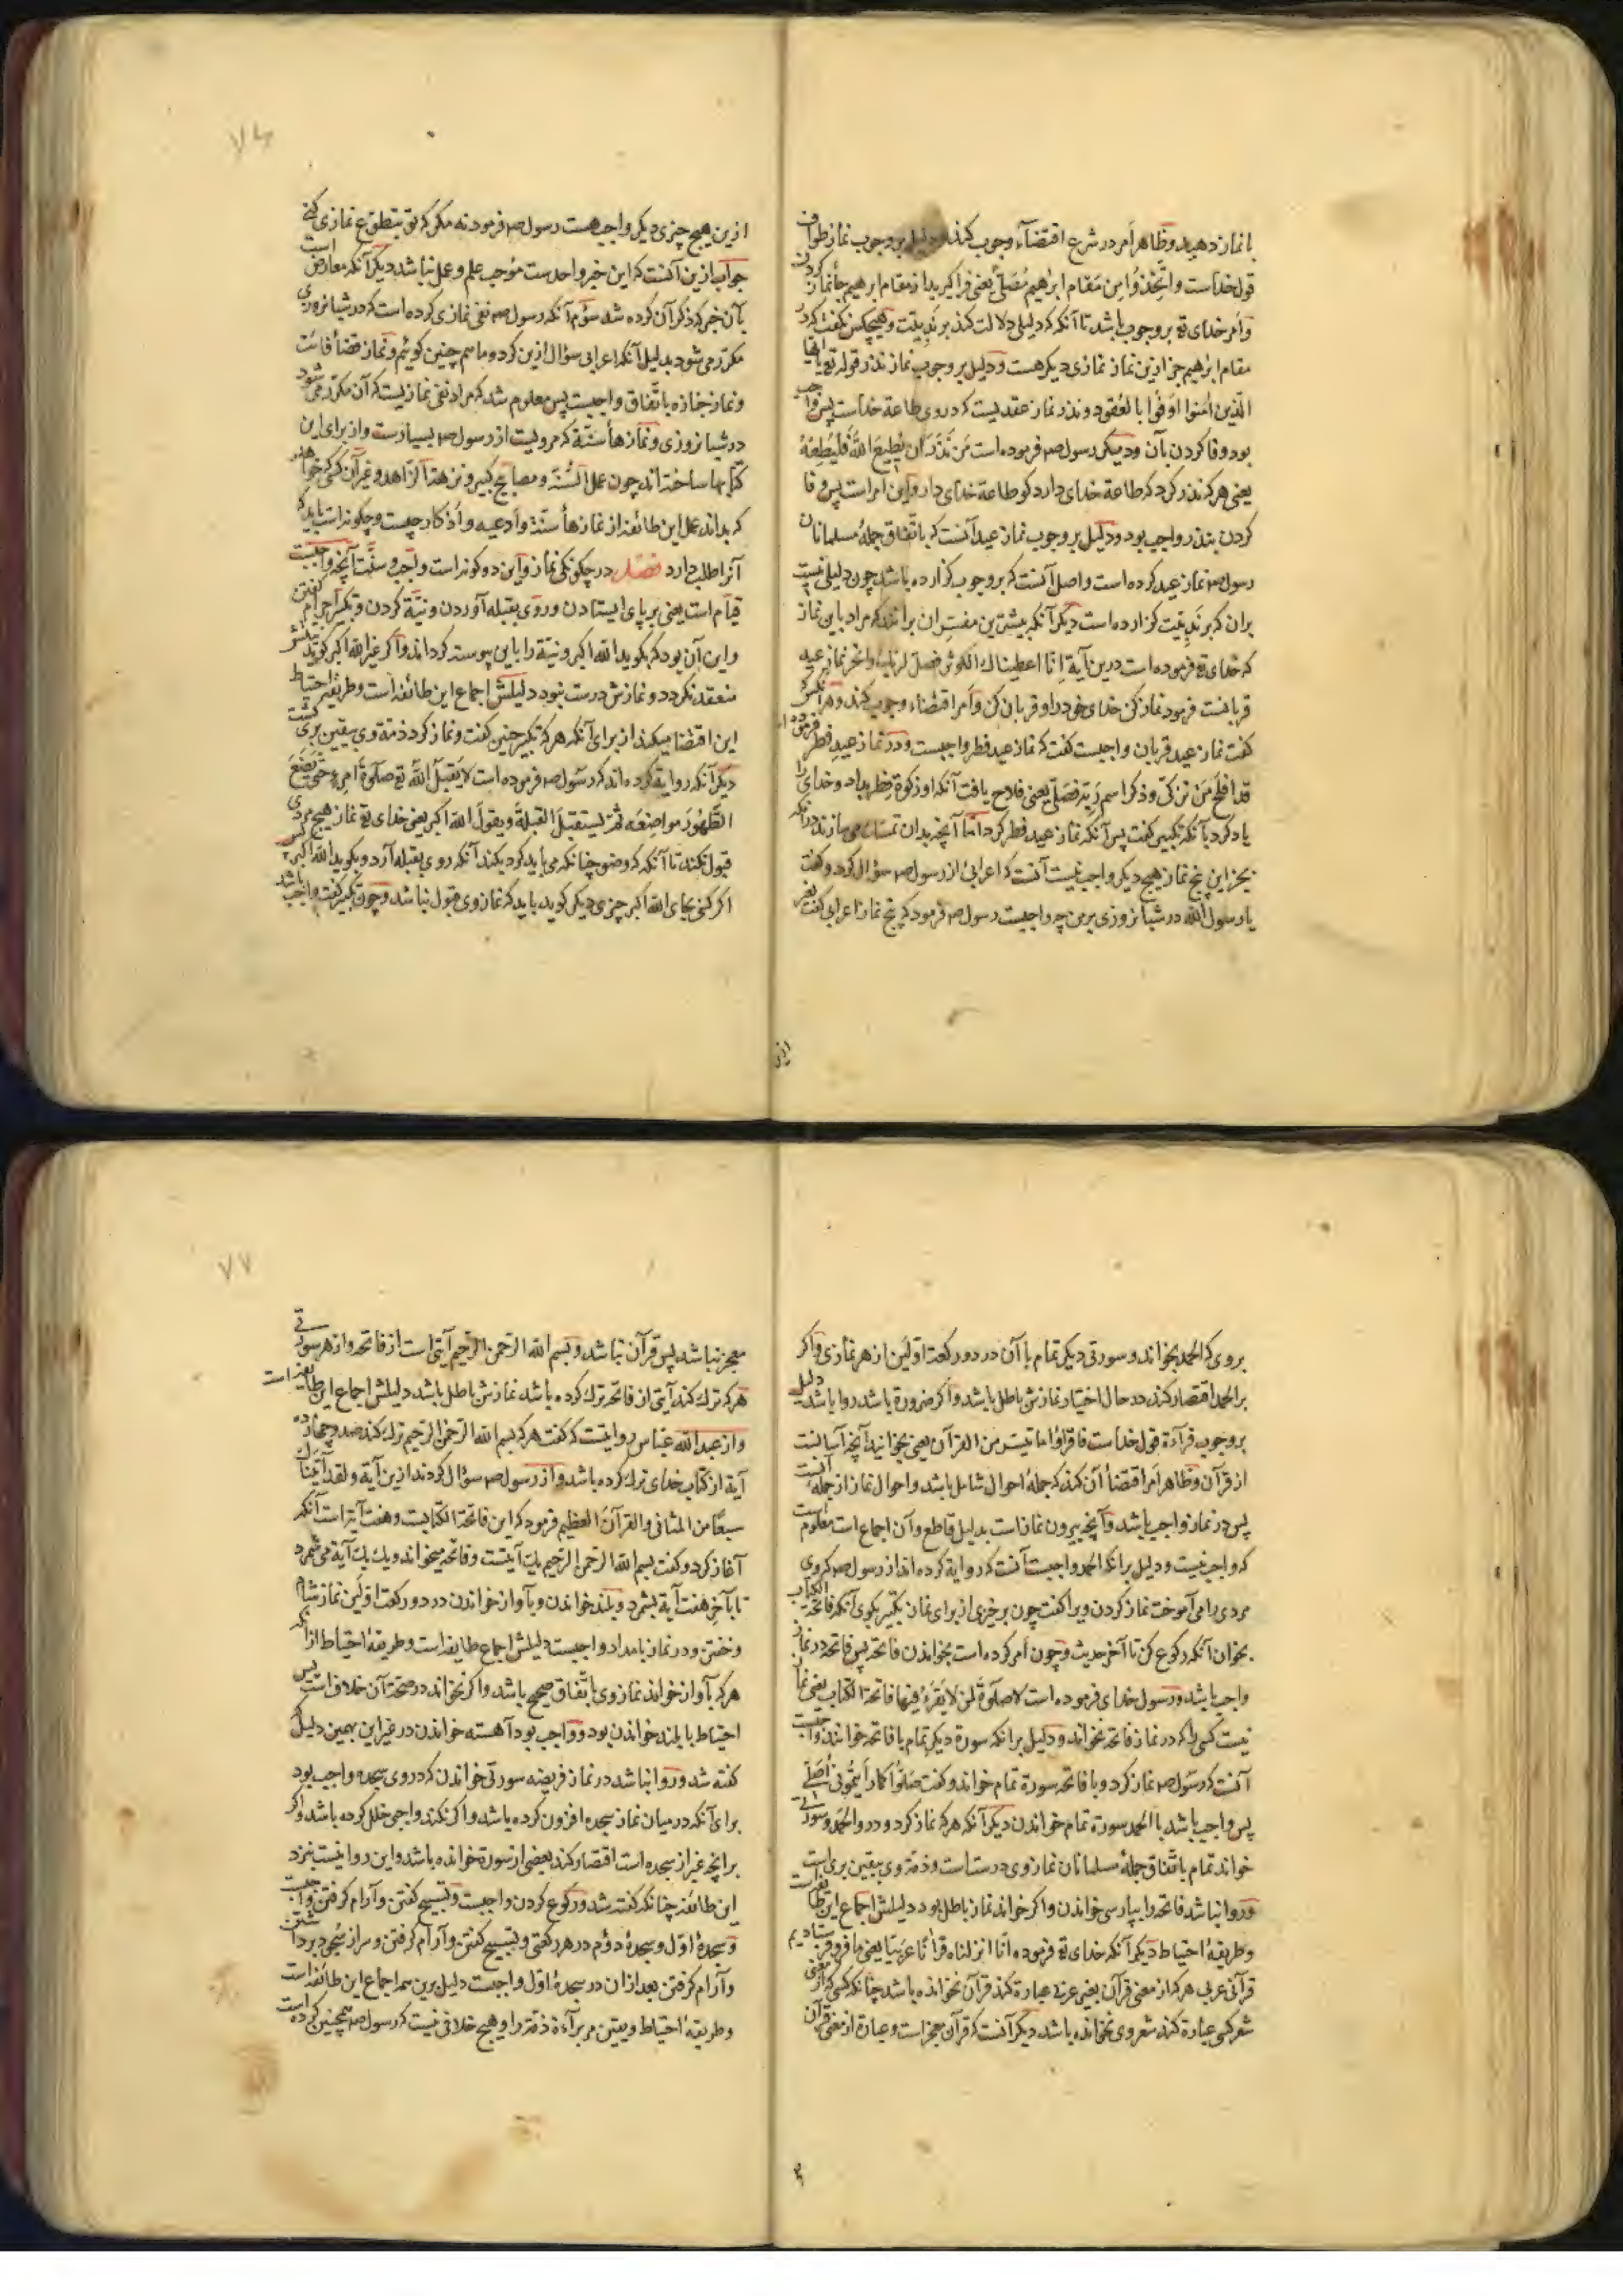 با نماز دهید و ظاهر امر در شرع اقتضاء وجوب کند و دلیل بر وجوب نماز طواف
قول خداست و اتخذوا من مقام ابرهیم مصلی یعنی فرا گیرید از مقام ابرهیم جأ نماز کردن
و امر خدای تع بر وجوب باشد تا آنکه که دلیلی دلالت کند بر ندبیت و هیچکس نگفت که در
مقام ابرهیم جز ازین نماز نمازی دیگر هست و دلیل بر وجوب نماز نذر قوله تع یا ایها
الذین امنوا اوفوا بالعقود و نذر نماز عقدیست که در وی طاعة خداست پس واجب
بود وفا کردن بآن و دیگر رسول صم فرموده است من نذر ان یطیع الله فلیطعه
یعنی هر که نذر کرد که طاعة خدای دارد کو طاعة خدای دار و این امر است پس وفا
کردن بنذر واجب بود و دلیل بر وجوب نماز عید آنست که باتفاق جملهٔ مسلمانان
رسول صم نماز عید کرده است و اصل آنست که بر وجوب گزارده باشد چون دلیلی نیست
بران که بر ندبیت گزارده است دیگر آنکه بیشترین مفسران برانند که مراد باین نماز
که خدای تع فرموده است درین آیة انا اعطیناك الکوثر فصل لربك وانحر نماز عید
قربانست فرمود نماز کن خدای خود را و قربان کن و امر اقتضاء وجوب کند و هر آنکس که
گفت نماز عید قربان واجبست گفت که نماز عید فطر واجبست و در نماز عید فطر فرموده است
قد افلح من تزکی و ذکر اسم ربه فصلی یعنی فلاح یافت آنکه او زکوة فطر بداد و خدای را
یاد کرد بآنکه تکبیر گفت پس آنکه نماز عید فطر کرد اما آنچه بدان تمسك می سازند در آنکه
بجز این پنج نماز هیچ دیگر واجب نیست آنست که اعرابی از رسول صم سؤال کرد و گفت
یا رسول الله در شبانروزی بر من چه واجبست رسول صم فرمود که پنج نماز اعرابی گفت بغیر
ازین
ازین هیچ چیزی دیگر واجب هست رسول صم فرمود نه مگر که تو بتطوع نمازی کنی
جواب ازین آنست که این خبر واحدست موجب علم و عمل نباشد دیگر آنکه معارض است
بآن خبر که ذکر آن کرده شد سؤم آنکه رسول صم نفی نمازی کرده است که در شبانروزی
مکرر می شود بدلیل آنکه اعرابی سؤال ازین کرد و ما هم چنین گوئیم و نماز قضأ فائت
و نماز جنازه باتفاق واجبست پس معلوم شد که مراد نفی نمازیست که آن مکرر می شود
در شبانروزی و نمازهأ سنة که مرویست از رسول صم بسیارست و از برای این
کتابها ساخته اند چون عمل السنة و مصابیح کبیر و نزهة الزاهد و غیر آن کسی که خواهد
که بداند عمل این طائفه از نمازهأ سنة و ادعیه و اذکار چیست و چگونه است باید که
آنرا طلب دارد فصل در چگونگی نماز و این دو گونه است واجب و سنت آنچه واجبست
قیام است یعنی بر پای ایستادن و روی بقبله آوردن و نیة کردن و تکبیر احرام گفتن
و این آن بود که بگوید الله اکبر و نیة را باین پیوسته گرداند و اگر غیر الله اکبر گوید نمازش
منعقد نگردد و نمازش درست نبود دلیلش اجماع این طائفه است و طریقهٔ احتیاط
این اقتضا میکند از برای آنکه هر که تکبیر چنین گفت و نماز کرد ذمة وی بیقین بری گشت
دیگر آنکه روایة کرده اند که رسول صم فرموده است لا یقبل الله تع صلوة امرء حتی یضع
الطهور مواضعه ثم یستقبل القبلة و یقول الله اکبر یعنی خدای تع نماز هیچ مردی
قبول نکند تا آنکه که وضو چنانکه می باید کرد بکند آنکه روی بقبله آرد و بگوید الله اکبر پس
اگر کسی بجای الله اکبر چیزی دیگر گوید باید که نماز وی قبول نباشد و چون تکبیر گفت واجب باشد
بر وی که الحمد بخواند و سورتی دیگر تمام با آن در دو رکعة اولین از هر نمازی و اگر
بر الحمد اقتصار کند در حال اختیار نمازش باطل باشد و اگر ضرورة باشد روا باشد دلیل
بر وجوب قرآءة قول خداست فاقرؤا ما تیسر من القرآن یعنی بخوانید آنچه آسانست
از قرآن و ظاهر امر اقتضأ آن کند که جملهٔ احوال شامل باشد و احوال نماز از جملهٔ آنست
پس در نماز واجب باشد و آنچه بیرون نماز است بدلیل قاطع و آن اجماع است معلوم است
که واجب نیست و دلیل بر انکه الحمد واجبست آنست که روایة کرده اند از رسول صم که وی
مردی را می آموخت نماز کردن ویرا گفت چون بر خیزی از برای نماز تکبیر بگوی آنکه فاتحة الکتاب
بخوان آنکه رکوع کن تا آخر حدیث و چون امر کرده است بخواندن فاتحه پس فاتحه در نماز
واجب باشد و رسول خدای فرموده است لا صلوة لمن لا یقرء فیها فاتحة الکتاب یعنی نماز
نیست کسی را که در نماز فاتحه نخواند و دلیل بر انکه سورة دیگر تمام با فاتحه خوانند واجبست
آنست که رسول صم نماز کرد و با فاتحه سورة تمام خواند و گفت صلوا کما رأیتمونی أصلی
پس واجب باشد با الحمد سورة تمام خواندن دیگر آنکه هر که نماز کرد و درو الحمد و سورتی
خواند تمام باتفاق جملهٔ مسلمانان نماز وی درست است و ذمة وی بیقین بری است
و روا نباشد فاتحه را بپارسی خواندن و اگر خواند نماز باطل بود دلیلش اجماع این طایفه است
و طریقهٔ احتیاط دیگر آنکه خدای تع فرموده انا انزلناه قرآنا عربیا یعنی ما فرو فرستادیم
قرآنی عربی هر که از معنی قرآن بغیر عربی عبارة کند قرآن نخوانده باشد چنانکه کسی که از معنی
شعر کسی عبارة کند شعر وی نخوانده باشد دیگر آنست که قرآن معجز است و عبارة از معنی قرآن
معجز نباشد پس قرآن نباشد و بسم الله الرحمن الرحیم آیتی است از فاتحه و از هر سورتی
هر که ترك کند آیتی از فاتحه ترك کرده باشد نمازش باطل باشد دلیلش اجماع این طایفه است
و از عبد الله عباس روایتست که گفت هر که بسم الله الرحمن الرحیم ترك کند صد و چهارده
آیة از کتاب خدای ترك کرده باشد و از رسول صم سؤال کردند ازین آیة و لقد آتیناك
سبعا من المثانی و القرآن العظیم فرمود که این فاتحة الکتابست و هفت آیة است آنکه
آغاز کرد و گفت بسم الله الرحمن الرحیم یك آیتست و فاتحه میخواند و یك یك آیة می شمرد
تا بآخر هفت آیة بشمرد و بلند خواندن و بآواز خواندن در دو رکعت اولین نماز شام
و خفتن و در نماز بامداد واجبست دلیلش اجماع طایفه است و طریقهٔ احتیاط از آنکه
هر که بآواز خواند نماز وی باتفاق صحیح باشد و اگر نخواند در صحة آن خلاف است پس
احتیاط با بلند خواندن بود و واجب بود آهسته خواندن در غیر این بهمین دلیل که
گفته شد و روا نباشد در نماز فریضه سورتی خواندن که در وی سجده واجب بود
برای آنکه در میان نماز سجده افزون کرده باشد و اگر نکند واجبی خلل کرده باشد و اگر
بر انچه غیر از سجده است اقتصار کند بعضی از سورة خوانده باشد و این روا نیست بنزد
این طائفه چنانکه گفته شد و رکوع کردن واجبست و تسبیح گفتن و آرام گرفتن واجبست
و سجدهٔ اول و سجدهٔ دوم در هر رکعتی و تسبیح گفتن و آرام گرفتن و سر از سجود برداشتن
و آرام گرفتن بعد ازان در سجدهٔ اول واجبست دلیل برین همه اجماع این طائفه است
و طریقهٔ احتیاط و یقین مر برآءة ذمة را و هیچ خلافی نیست که رسول صم همچنین کرده است